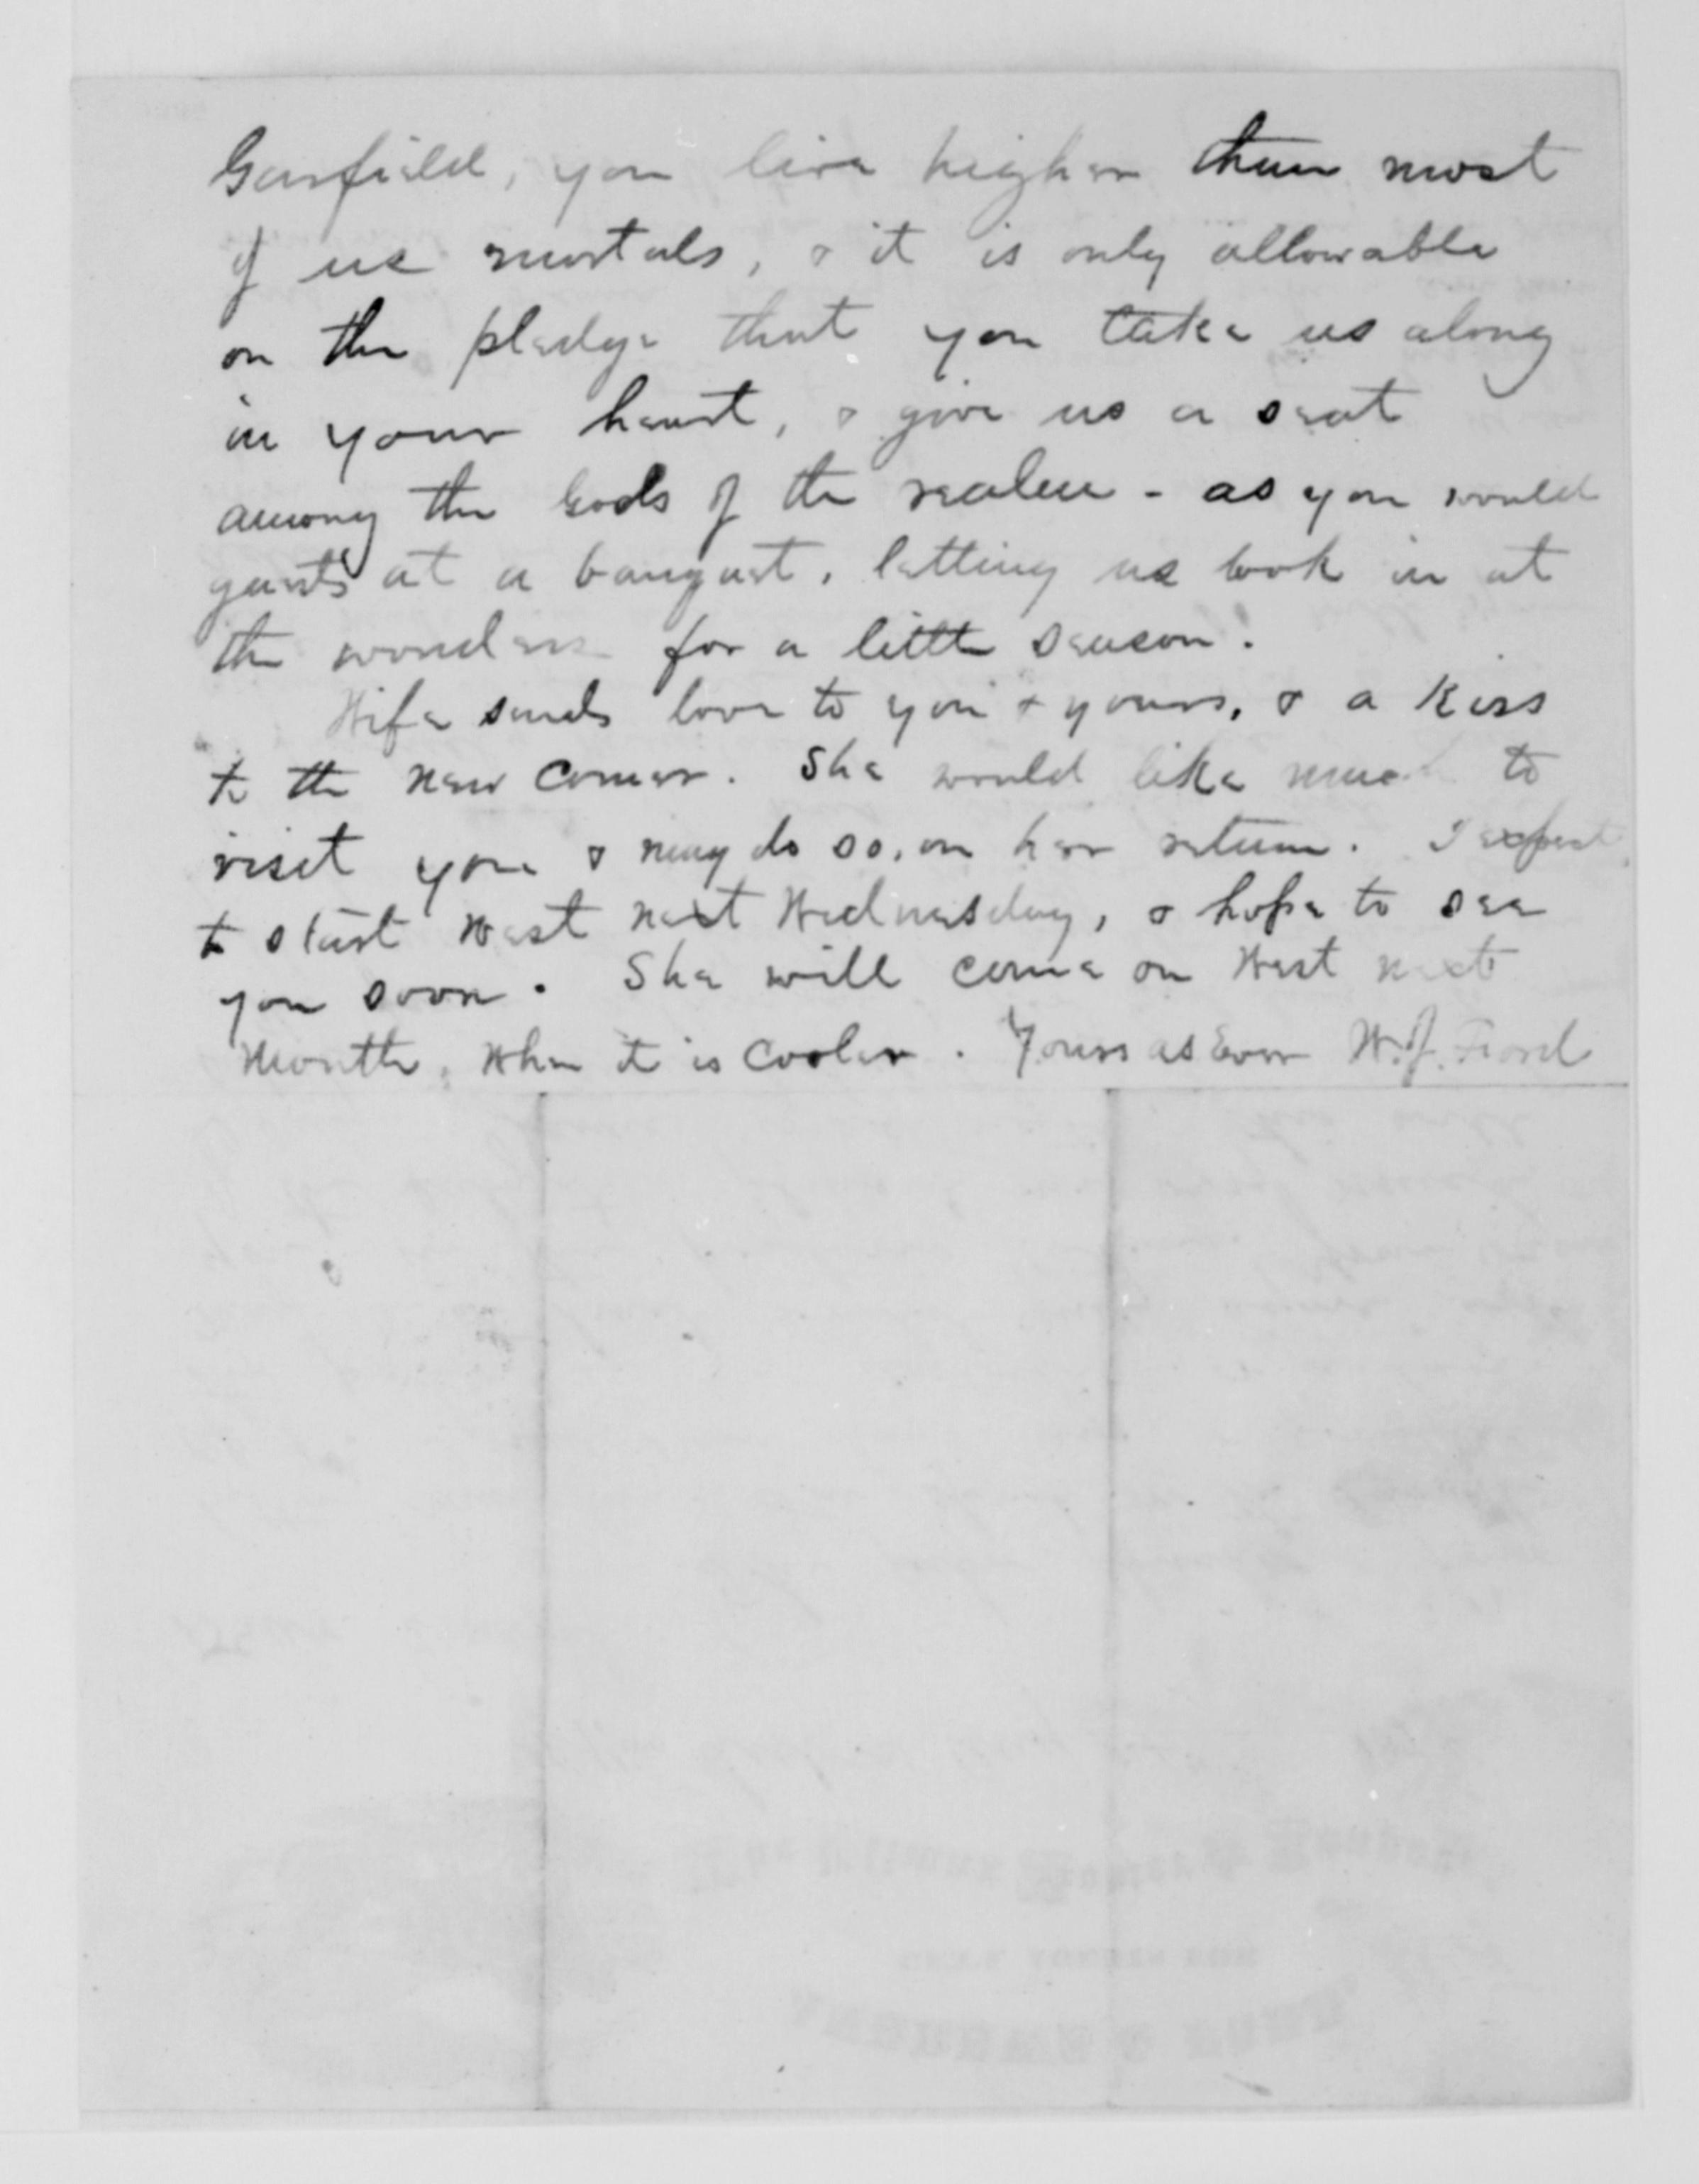 Garfield, you live higher than most
of us mortals, & it is only allowable
on the pledge that you take us along
in your heart, & give us a seat
among the Gods of the realm - as you would
guests at a banquet, letting us look in at
the wonders for a little season.
Wife sends love to you & yours, & a kiss
to the new comer. She would like much to
visit you & may do so, on her return. I expect
to start West next Wednesday, & hope to see
you soon. She will come on West next
Month, when it is cooler. Yours as Ever W.J. Ford